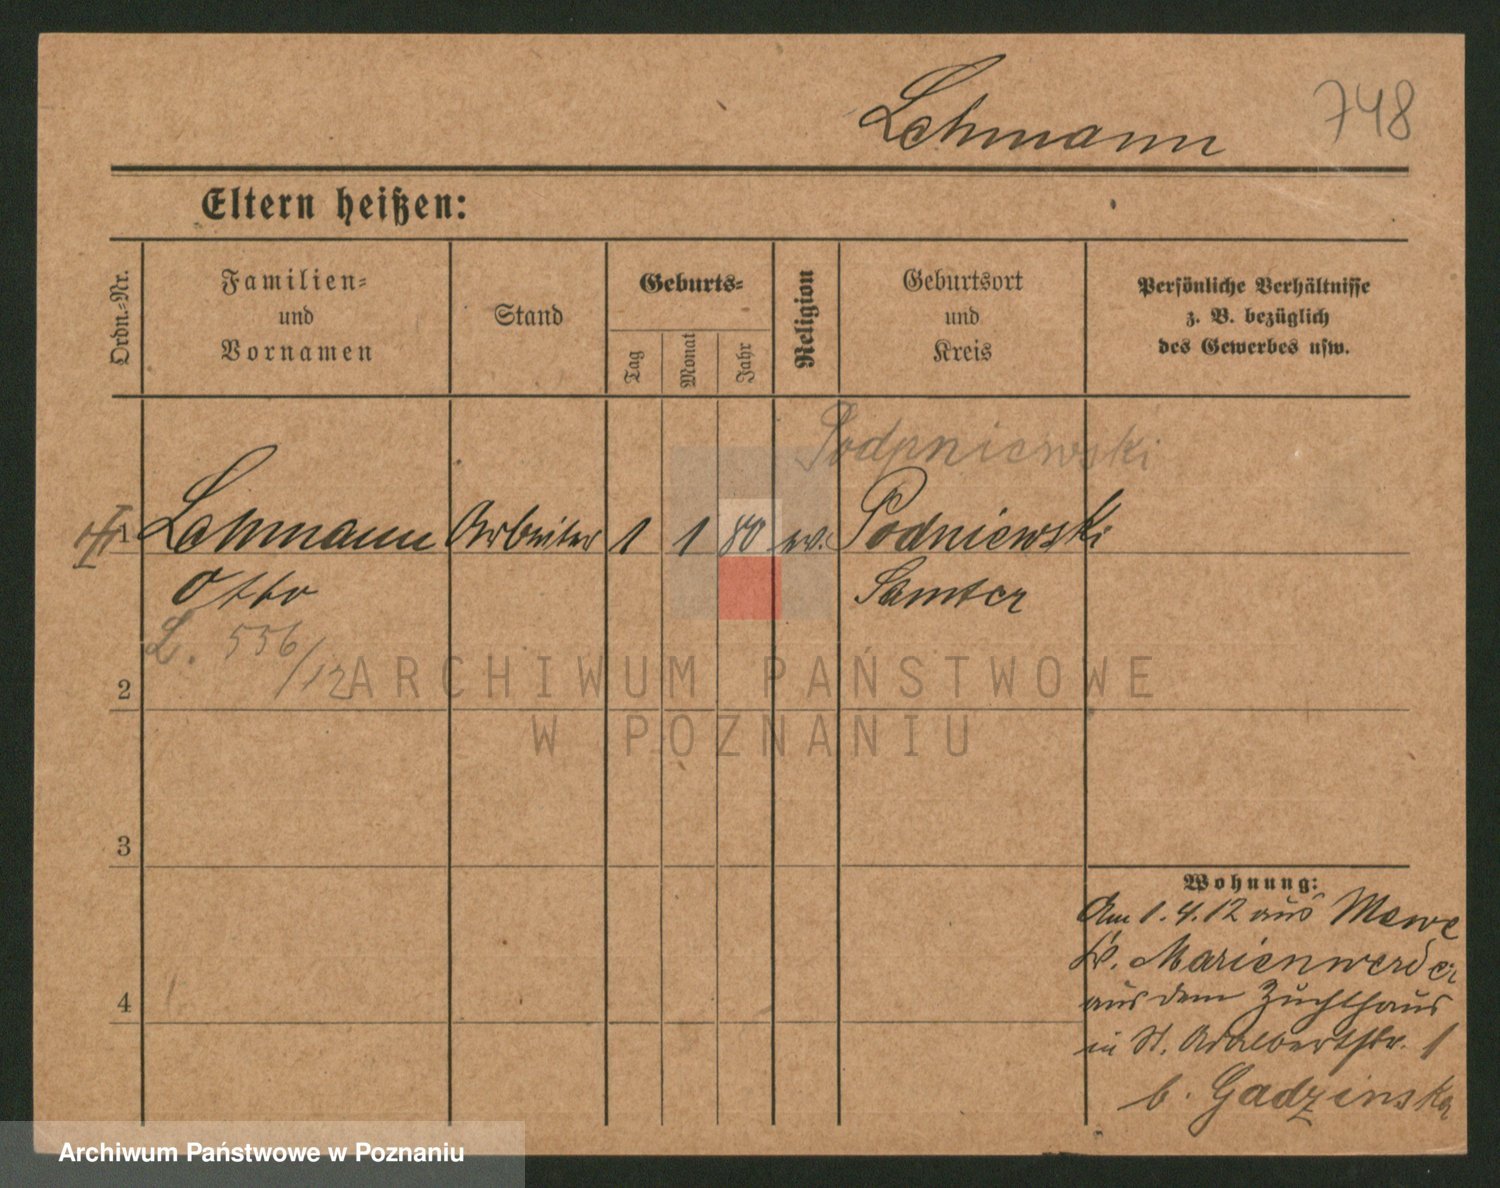 Lehmann 748
Eltern heißen:
Ordn.-Nr.
Familien-
und
Vornamen
Stand
Geburts-
Tag
Monat
Jahr
Religion
Geburtsort
und
Kreis
Persönliche Verhältnisse
z. B. bezüglich
des Gewerbes usw.
1 Lehmann Arbeiter 1 1 80 ev. Podniewski
Otto Samter
L. 556/12
2
3
4
Wohnung:
Am 1.4.12 aus Mewe
Kr. Marienwerder
aus dem Zuchthaus
in St. Adalbertstr. 1
b. Gadzinska
ARCHIWUM PAŃSTWOWE
W POZNANIU
Archiwum Państwowe w Poznaniu